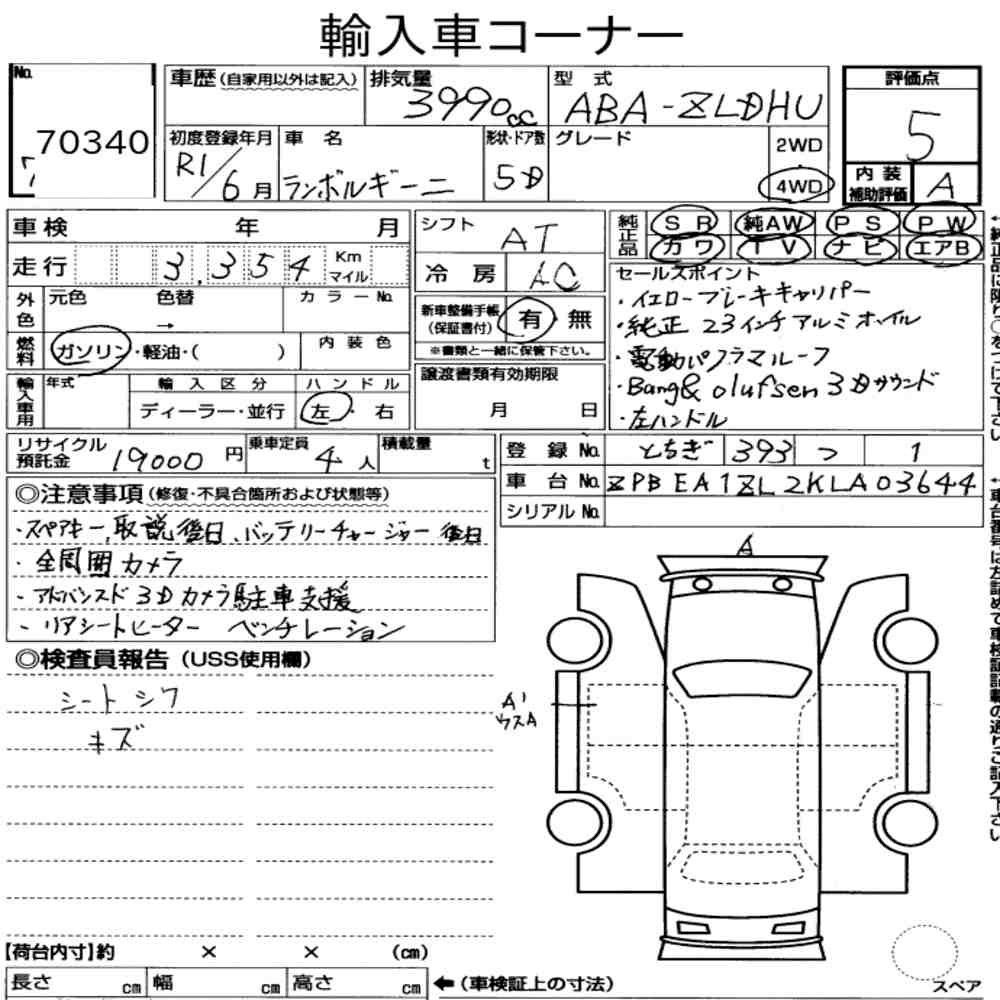 輸入車コーナー
No. 70340
車歴(自家用以外は記入) 排気量 3990cc 型式 ABA-ZLDHU 評価点 5
初度登録年月 R1/6月 車名 ランボルギーニ 形状・ドア数 5D グレード 2WD 4WD 内装補助評価 A
車検 年 月 シフト AT 純正品 SR 純AW PS PW
カワ TV ナビ エアB
走行 3,354 Km マイル 冷房 AC セールスポイント
・イエローブレーキキャリパー
外色 元色 色替 → カラーNo. 新車整備手帳(保証書付) 有 無
※書類と一緒に保管下さい。
・純正 23インチアルミホイル
燃料 ガソリン・軽油・( ) 内装色
・電動パノラマルーフ
輸入車用 年式 輸入区分 ハンドル 譲渡書類有効期限
・Bang& olufsen 3Dサウンド
ディーラー・並行 左・右 月 日
・左ハンドル
リサイクル預託金 19000円 乗車定員 4人 積載量 t 登録No. とちぎ 393 つ 1
車台No. ZPBEA1ZL2KLA03644
シリアルNo.
◎注意事項(修復・不具合箇所および状態等)
・スペアキー,取説後日、バッテリーチャージャー 後日
・全周囲カメラ
・アドバンスド 3Dカメラ駐車支援
・リアシートヒーター ベンチレーション
◎検査員報告(USS使用欄)
シートシワ
キズ
A
A'
ウスA
【荷台内寸】約 × × (cm)
長さ cm 幅 cm 高さ cm ←(車検証上の寸法)
スペア